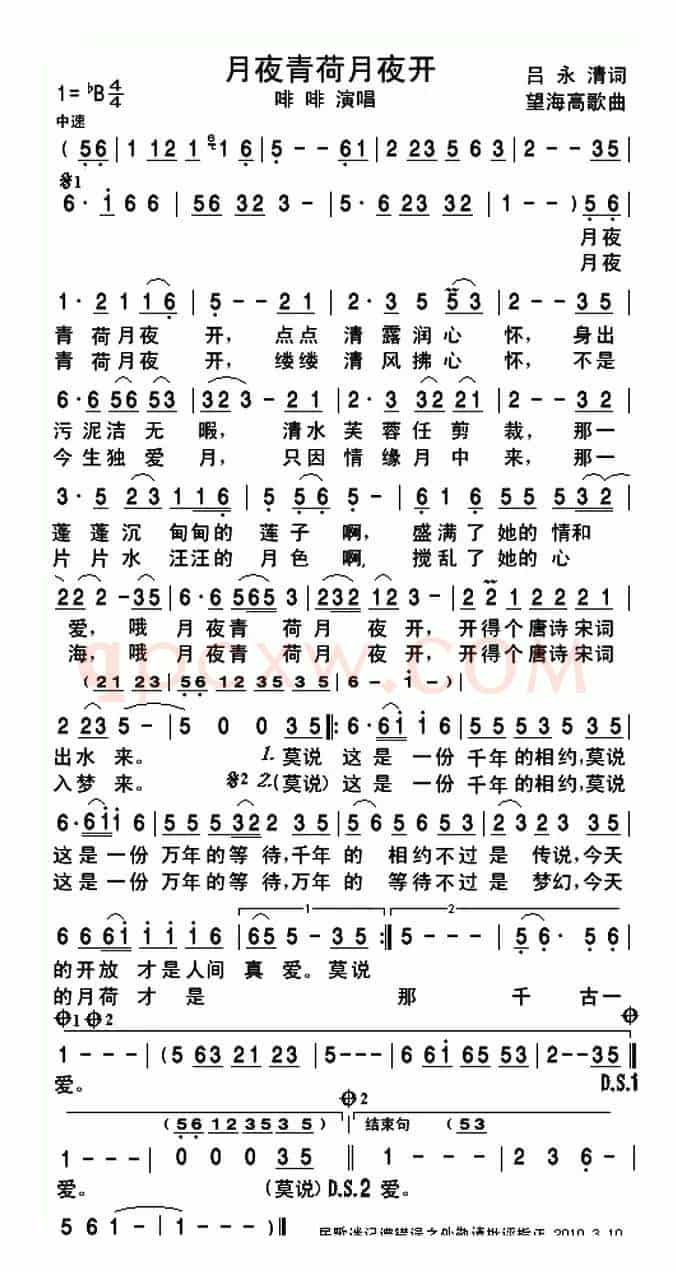 月夜青荷月夜开
1=♭B 4/4
啡 啡 演唱
吕 永 清词
望海高歌曲
中速
( 5 6 | 1 1 2 1 1 6 | 5 - - 6 1 | 2 2 3 5 6 3 | 2 - - 3 5 |
𝄋1
6 · 1 6 6 | 5 6 3 2 3 - | 5 · 6 2 3 | 1 - - ) 5 6 |
月夜
月夜
1 · 2 1 1 6 | 5 - - 2 1 | 2 · 3 5 5 3 | 2 - - 3 5 |
青 荷 月 夜 开， 点点 清 露 润 心 怀， 身出
青 荷 月 夜 开， 缕缕 清 风 拂 心 怀， 不是
6 · 6 5 6 5 3 | 3 2 3 - 2 1 | 2 · 3 3 2 2 1 | 2 - - 3 2 |
污 泥 洁 无 暇， 清水 芙 蓉 任 剪 裁， 那一
今 生 独 爱 月， 只因 情 缘 月 中 来， 那一
3 · 5 2 3 1 1 6 | 5 5 6 5 - | 6 1 6 5 5 5 3 2 |
蓬 蓬 沉 甸甸的 莲 子 啊， 盛满了 她的 情和
片 片 水 汪汪的 月 色 啊， 搅乱了 她的 心
2 2 2 - 3 5 | 6 · 6 5 6 5 3 | 2 3 2 1 2 3 - | 2 2 1 2 2 2 1 |
爱，哦 月 夜青 荷 月 夜 开， 开得个 唐诗宋词
海，哦 月 夜青 荷 月 夜 开， 开得个 唐诗宋词
( 2 1 2 3 | 5 6 1 2 3 5 3 5 | 6 - 1 - |
2 2 3 5 - | 5 0 0 3 5 ‖: 6 · 6 1 1 6 | 5 5 5 3 5 5 3 5 |
出 水 来。 1. 莫说 这 是 一份 千年的相约，莫说
入 梦 来。 𝄋2 2.(莫说) 这 是 一份 千年的相约，莫说
6 · 6 1 1 6 | 5 5 5 3 2 2 2 | 5 6 5 6 5 6 | 2 3 2 3 5 |
这是一份 万年的等待，千年 的 相约不过是 传说，今天
这是一份 万年的等待，万年 的 等待不过是 梦幻，今天
1
2
6 6 6 1 1 1 1 6 | 6 5 5 - 3 5 :‖ 5 - - - | 5 6 · 5 6 |
的开放 才是人间 真 爱。莫说
的月荷 才 是 那 千 古一
𝄌1 𝄌2 𝄌
1 - - - | ( 5 6 3 2 1 2 3 | 5 - - - | 6 6 1 6 5 5 3 | 2 - - 3 5 ‖
爱。 D.S.1
𝄌2
( 5 6 1 2 3 5 3 5 ) | 结束句 ( 5 3
1 - - - | 0 0 0 3 5 ‖ 1 - - - | 2 3 6 - |
爱。 (莫说) D.S.2 爱。
5 6 1 - - | 1 - - - ) ‖
2010.3.10
qpcxw.COM